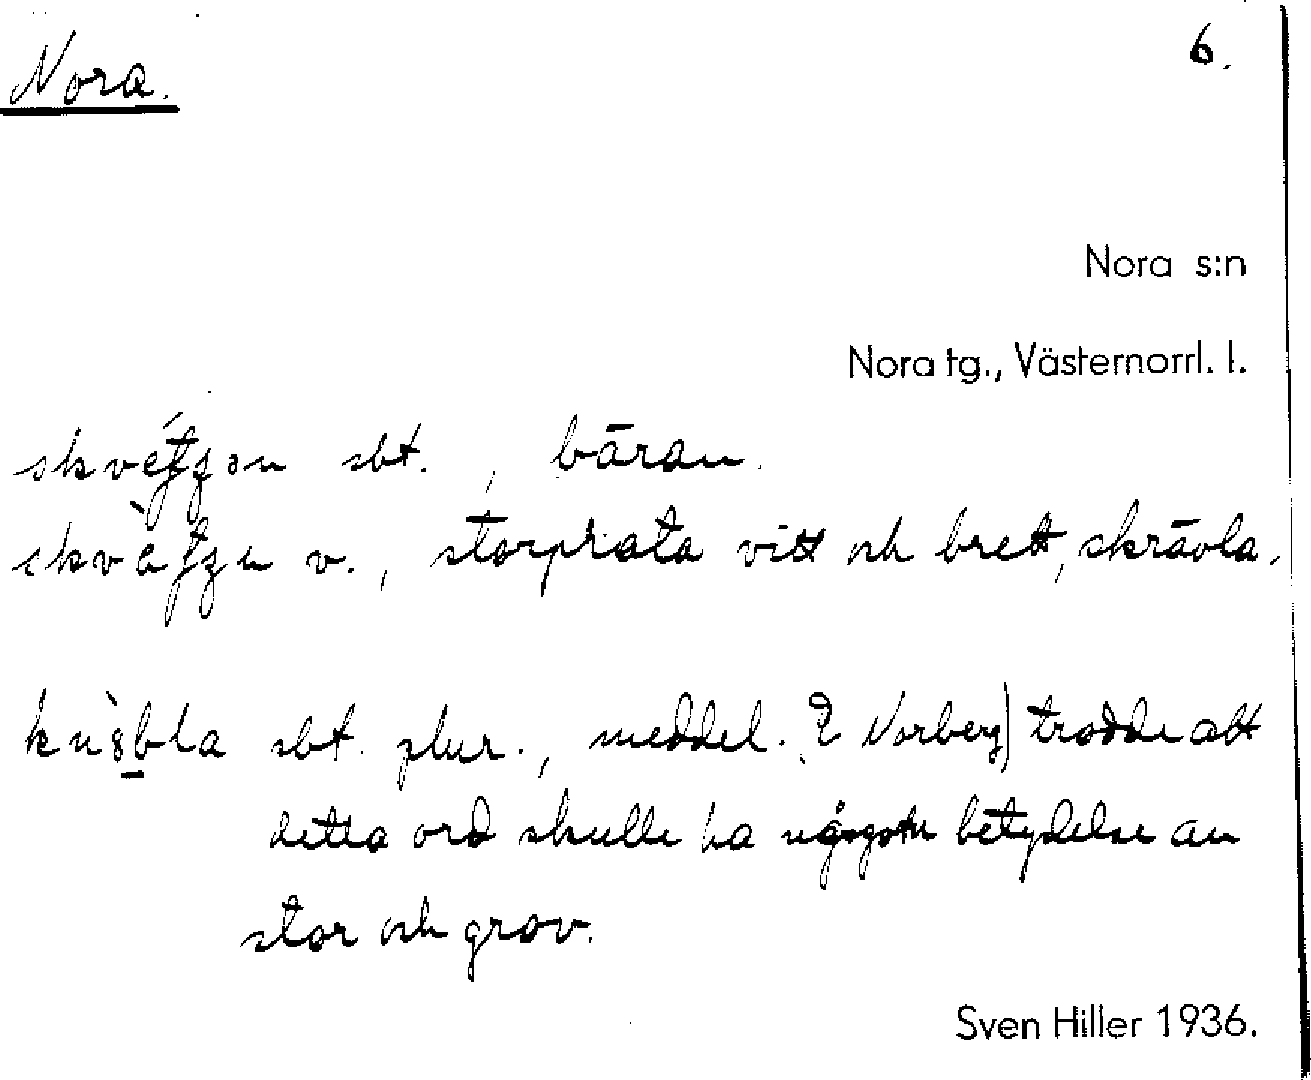 Nora. 6.
Nora s:n
Nora tg., Västernorrl. l.
sbt. , bāran.
v., storprata vitt och brett, skrävla.
sbt. plur., meddel. E Norberg) trodde att
detta ord skulle ha någon betydelse av
stor och grov.
Sven Hiller 1936.